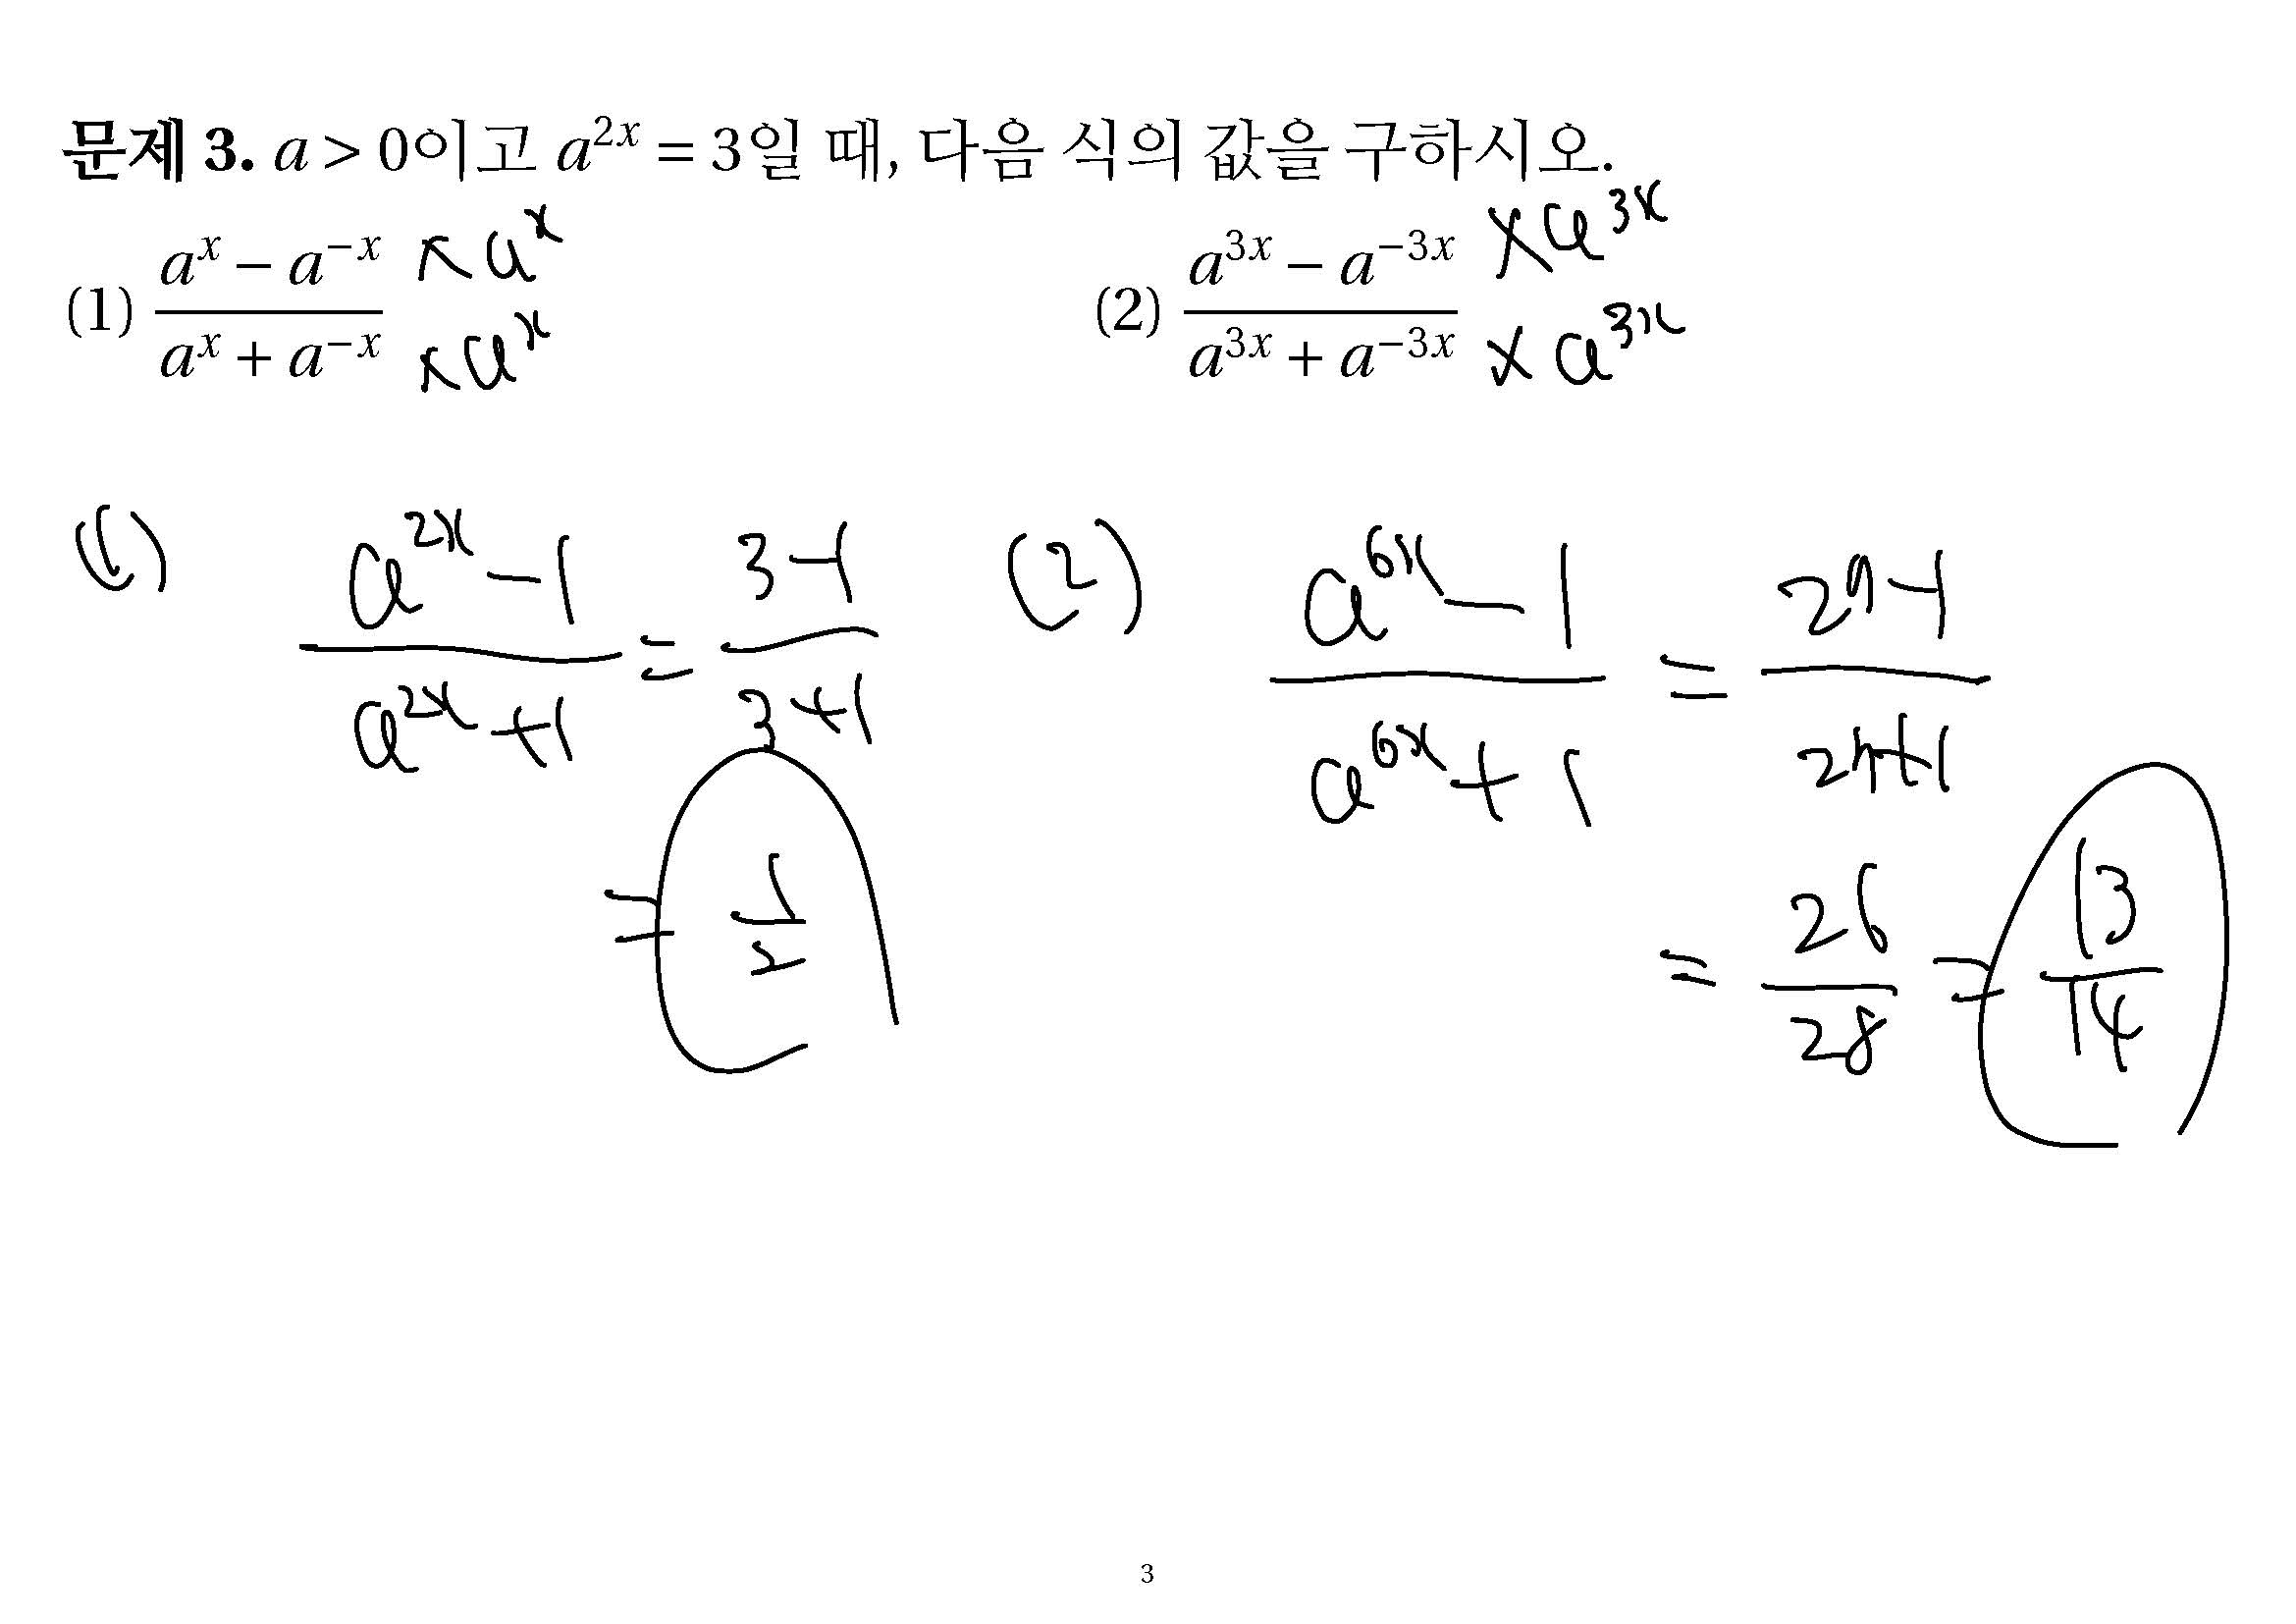 문제 3. a > 0이고 a^{2x} = 3일 때, 다음 식의 값을 구하시오.
(1) \frac{a^x - a^{-x}}{a^x + a^{-x}} \frac{× a^x}{× a^x}
(2) \frac{a^{3x} - a^{-3x}}{a^{3x} + a^{-3x}} \frac{× a^{3x}}{× a^{3x}}
(1) \frac{a^{2x} - 1}{a^{2x} + 1} = \frac{3-1}{3+1}
= \frac{1}{2}
(2) \frac{a^{6x} - 1}{a^{6x} + 1} = \frac{27-1}{27+1}
= \frac{26}{28} = \frac{13}{14}
3